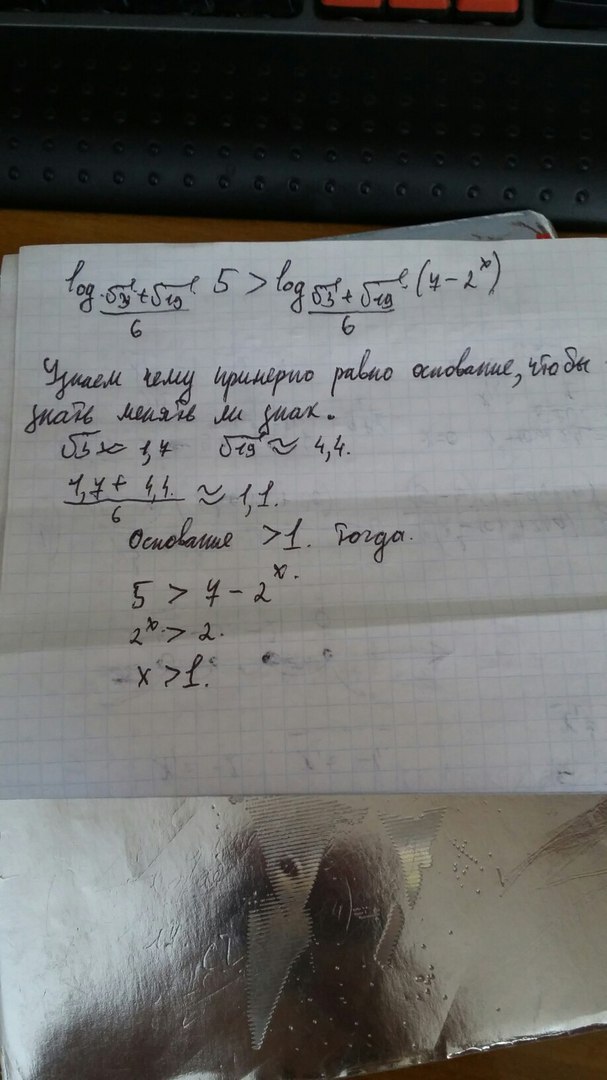 log_{(√3+√19)/6} 5 > log_{(√3+√19)/6} (7 − 2^x)
Узнаем чему примерно равно основание, чтобы
знать менять ли знак.
√3 ≈ 1,7 √19 ≈ 4,4.
(1,7 + 4,4)/6 ≈ 1,1.
Основание >1. Тогда.
5 > 7 − 2^x.
2^x > 2.
x > 1.